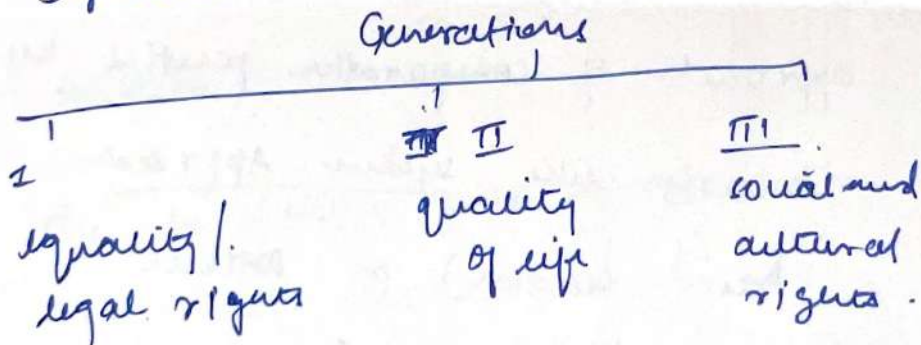 Generations
I
equality / legal rights
II
quality of life
III
social and cultural rights.